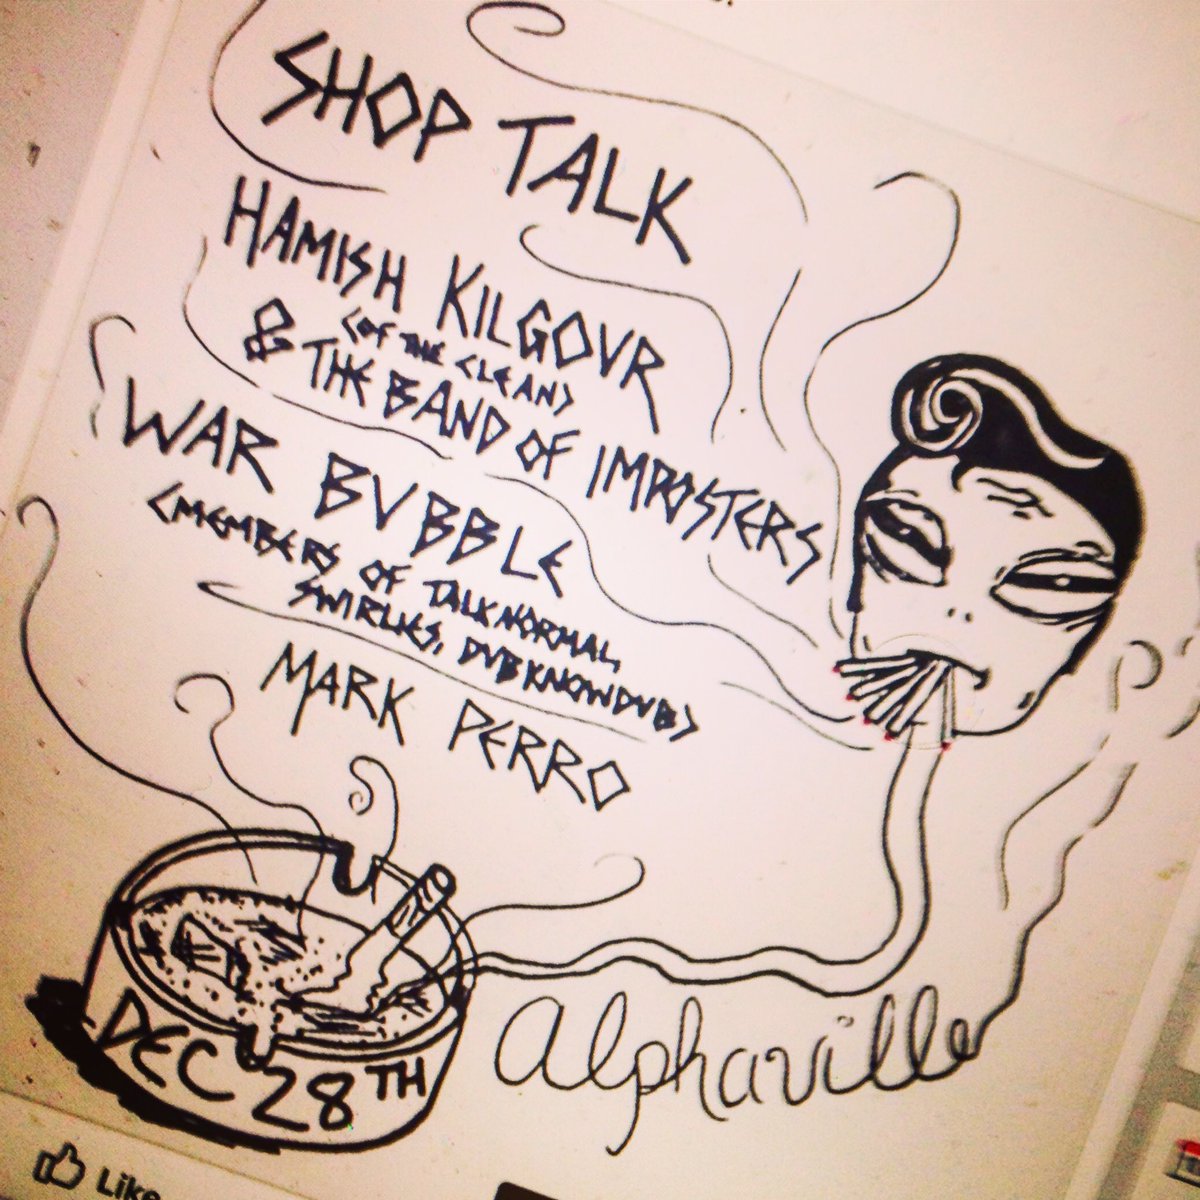 SHOP TALK
HAMISH KILGOUR
(OF THE CLEAN)
& THE BAND OF IMPOSTERS
WAR BUBBLE
(MEMBERS OF TALK NORMAL,
SWIRLIES, DUB KNOW DUB)
MARK PERRO
DEC 28TH
alphaville
Like